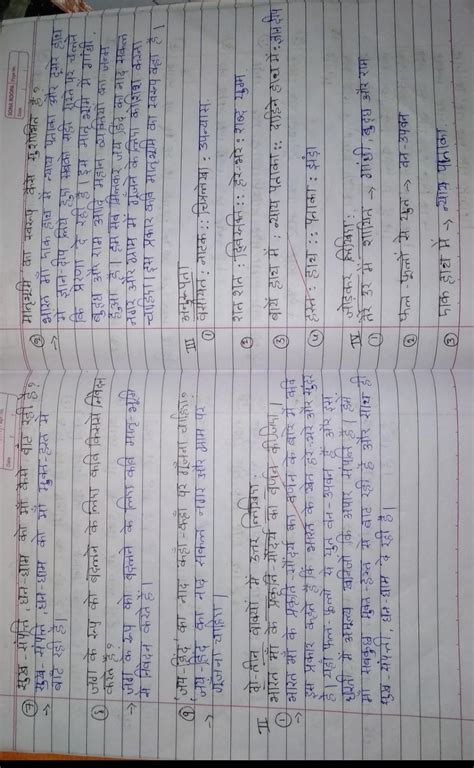 ⑦ सुख-संपत्ति, धन-धाम को माँ कैसे बाँट रही है?
→ सुख-संपत्ति, धन-धाम को माँ मुक्त-हस्त से
बाँट रही है।
⑧ जग के रूप को बदलने के लिए कवि किससे निवेदन
करते है?
→ जग के रूप को बदलने के लिए कवि मातृ-भूमि
से निवेदन करते है।
⑨ 'जय-हिंद' का नाद कहाँ-कहाँ पर गूँजना चाहिए?
→ 'जय हिंद' का नाद सकल नगर और ग्राम पर
गूँजना चाहिए।
II दो-तीन वाक्यों में उत्तर लिखिए:
① भारत माँ के प्रकृति-सौंदर्य का वर्णन कीजिए।
→ भारत माँ के प्रकृति-सौंदर्य का वर्णन के बारे में कवि
इस प्रकार कहते है कि भारत के खेत हरे-भरे और सुंदर
है। यहाँ फल-फूलों से युत वन-उपवन है और इस
धरती में अमूल्य खनिजों कि अपार संपत्ति है। इसे
माँ सबकुछ मुक्त-हस्त से बाँट रही है और साथ ही
सुख-संपत्ती, धन धाम दे रही है।
② मातृभूमि का स्वरूप कैसे सुशोभित है?
→ भारत माँ एक हाथ में न्याय पताका और दूसरे हाथ
में ज्ञान-दीप लिये हुए सबको सही रास्ते पर चलने
कि प्रेरणा दे रही है। इस मातृ भूमि में गांधी,
बुद्ध और राम आदि महान व्यक्तियों का जन्म
हुआ है। हम सब मिलकर जय हिंद का नाद सकल
नगर और ग्राम में गूँजने के लिए कोशिश करना
चाहिए। इस प्रकार कवि मातृभूमि का स्वरूप कहा है।
III अनुरूपता
① वसीयत : नाटक :: चित्रलेखा : उपन्यास.
② शत शत : द्विरुक्ति :: हरे-भरे : शब्द युग्म
③ बायें हाथ में : न्याय पताका :: दाहिने हाथ में : ज्ञानदीप
④ हस्त : हाथ :: पताका : झंडा
IV जोडकर लिखिए:
① तेरे उर में शायित → गांधी, बुद्ध और राम
② फल-फूलों से युत → वन-उपवन
③ एक हाथ में → न्याय पताका.